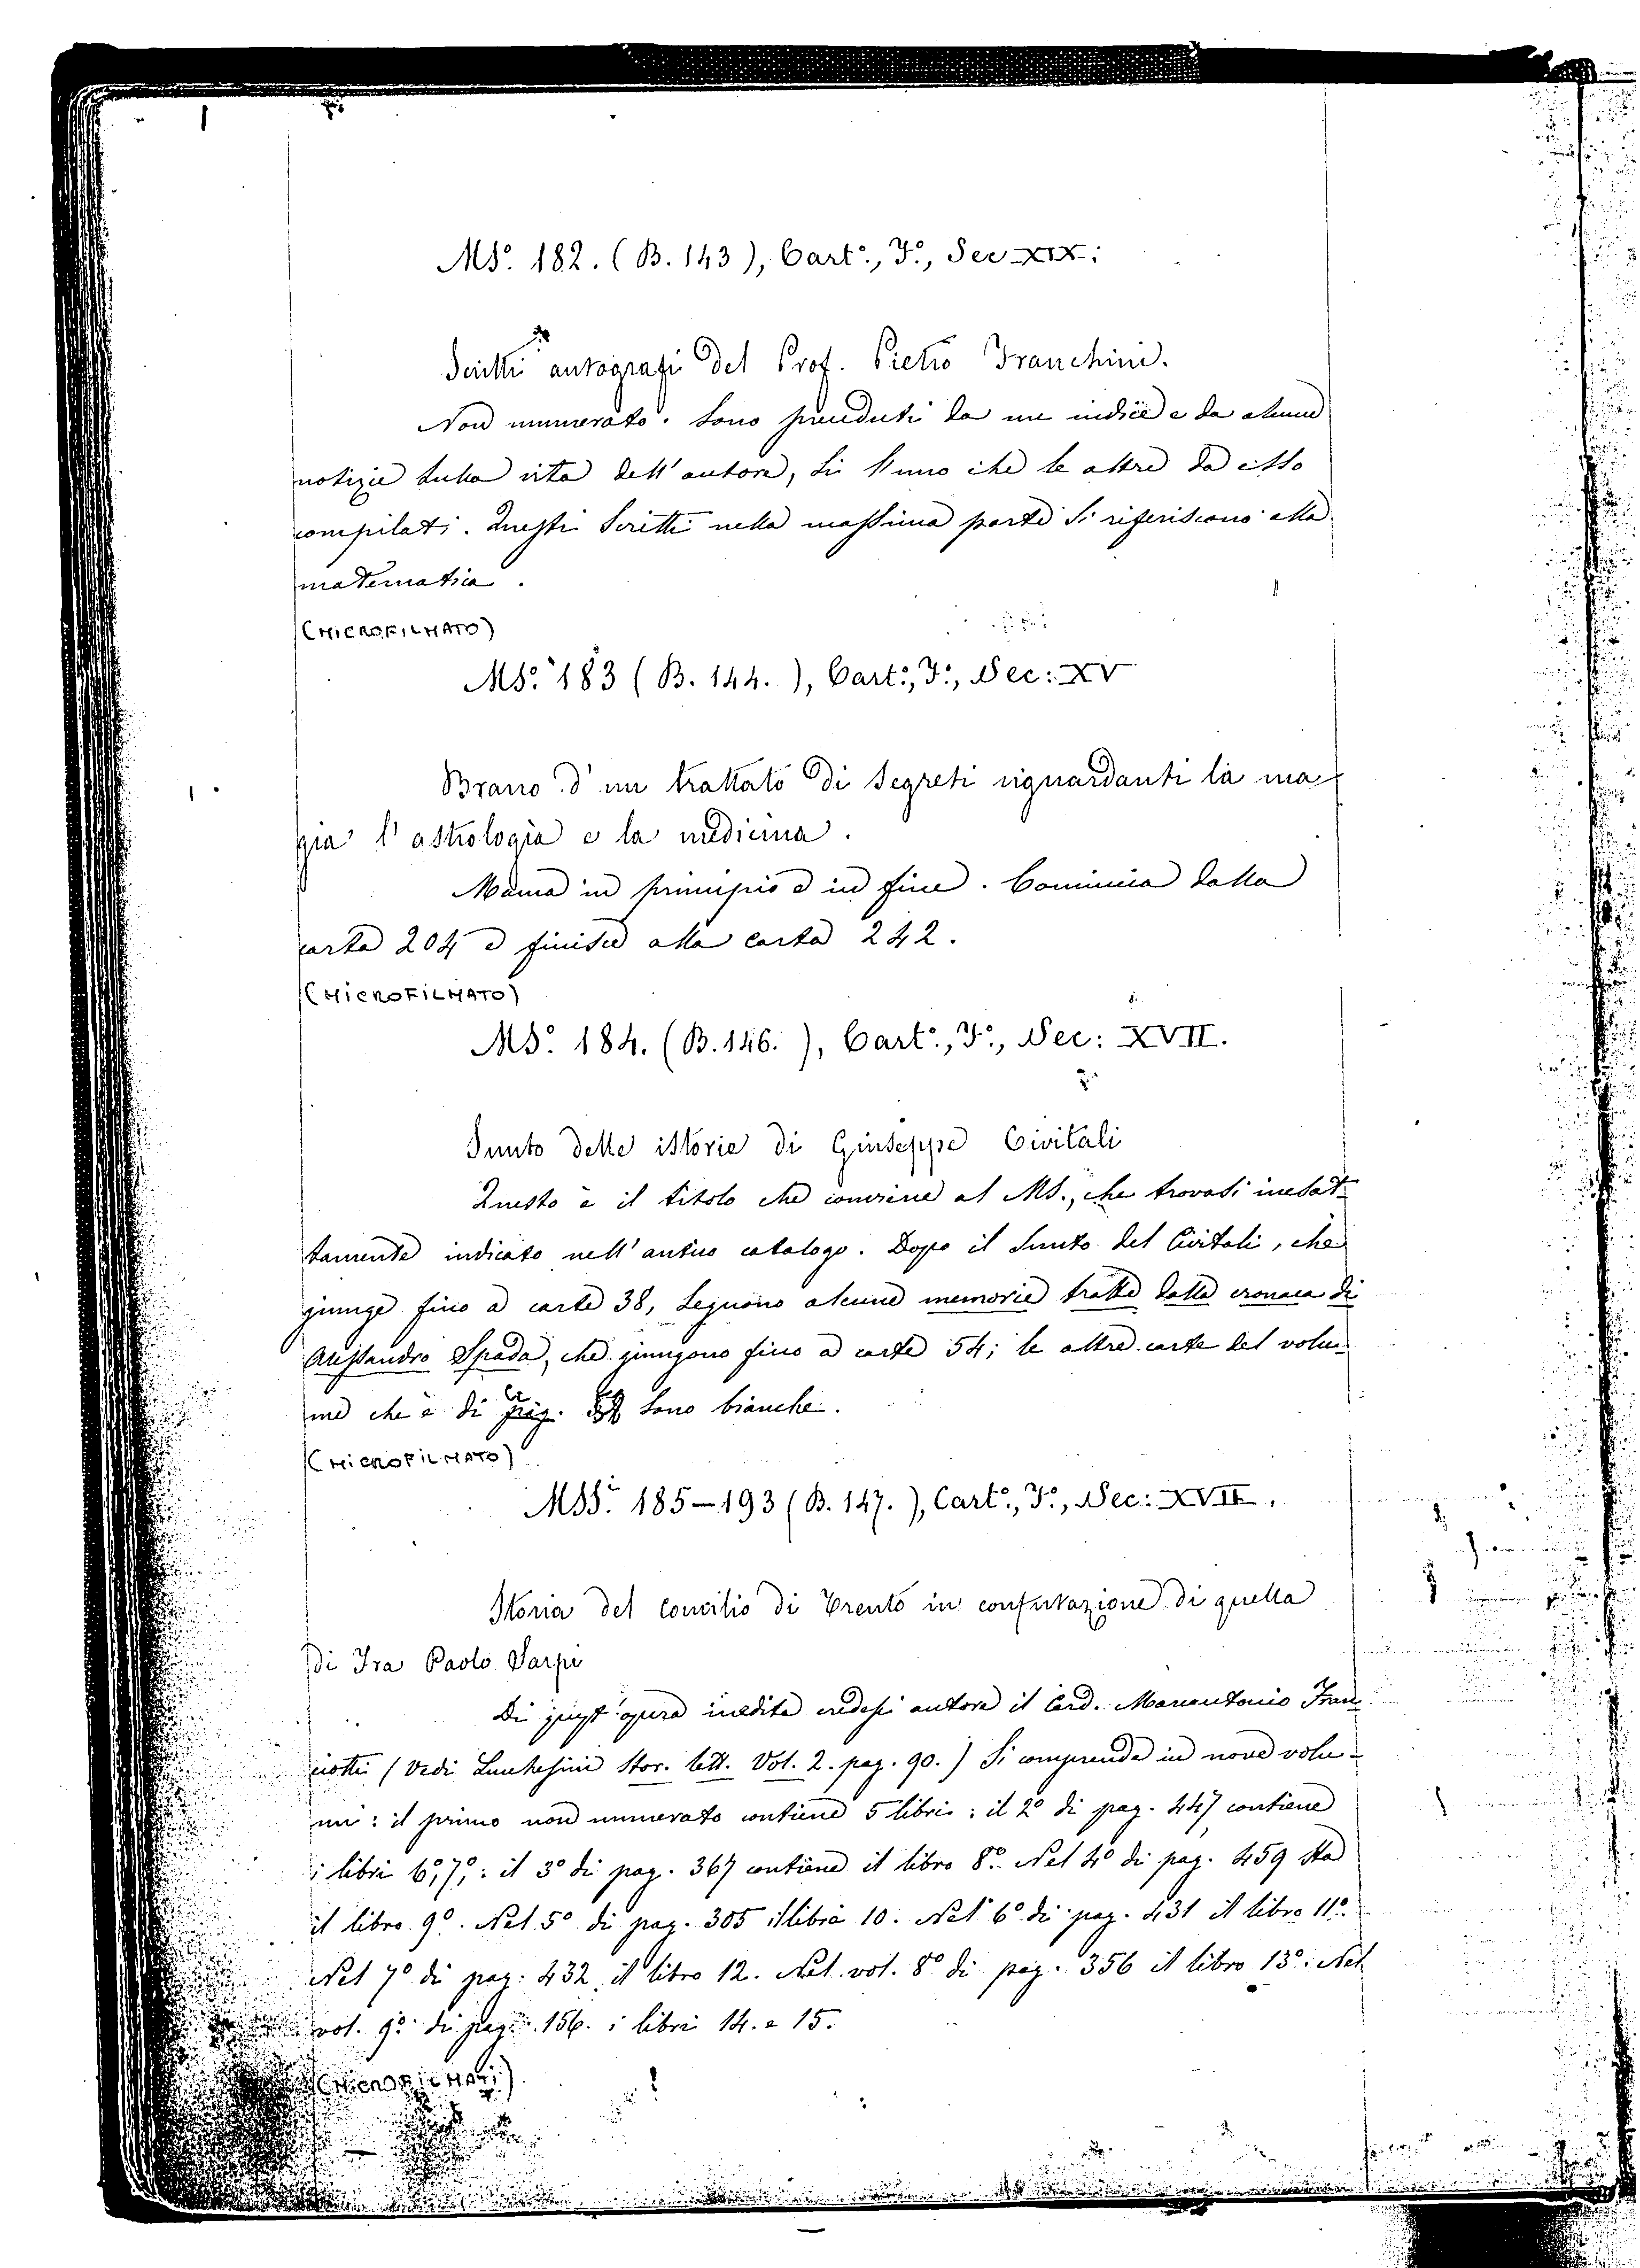 MS.º 182. (B. 143), Cart.º, F.º, Sec XIX:
Scritti autografi del Prof. Pietro Franchini.
Non numerato. Sono preceduti da un indice e da alcune
notizie sulla vita dell' autore, sì l' uno che le altre da esso
compilati. Questi scritti nella massima parte si riferiscono alla
matematica.
(MICROFILMATO)
MS.º 183 (B. 144.), Cart.º, F.º, Sec: XV
Brano d' un trattato di segreti riguardanti la ma-
gia l' astrologia e la medicina.
Manca in principio e in fine. Comincia dalla
carta 204 e finisce alla carta 242.
(MICROFILMATO)
MS.º 184. (B. 146.), Cart.º, F.º, Sec: XVII.
Sunto delle istorie di Giuseppe Civitali
Questo è il titolo che conviene al MS., che trovasi inesat-
tamente indicato nell' antico catalogo. Dopo il Sunto del Civitali, che
giunge fino a carte 38, seguono alcune memorie tratte dalla cronaca di
Alessandro Spada, che giungono fino a carte 54; le altre carte del volu-
me che è di pag. sono bianche.
(MICROFILMATO)
MSS.º 185-193 (B. 147.), Cart.º, F.º, Sec: XVII.
Storia del Concilio di Trento in confutazione di quella
di Fra Paolo Sarpi
Di quest' opera inedita credesi autore il Card. Marcantonio Fran-
ciotti (Vedi Lucchesini Stor. lett. Vol. 2. pag. 90.) Si comprende in nove volu-
mi: il primo non numerato contiene 5 libri: il 2º di pag. 447 contiene
i libri 6º, 7º,: il 3º di pag. 367 contiene il libro 8º. Nel 4º di pag. 459 sta
il libro 9º. Nel 5º di pag. 305 il libro 10. Nel 6º di pag. 431 il libro 11º.
Nel 7º di pag. 432 il libro 12. Nel vol. 8º di pag. 356 il libro 13º. Nel
vol. 9º di pag. 156. i libri 14. e 15.
(MICROFILMATI)